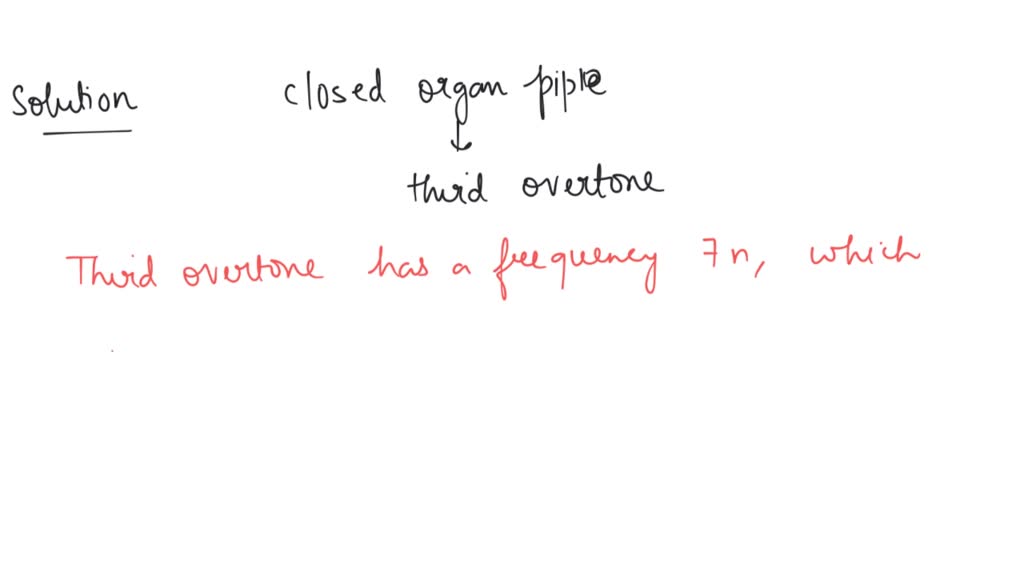 Solution closed organ pipe
third overtone
Third overtone has a frequency 7n, which